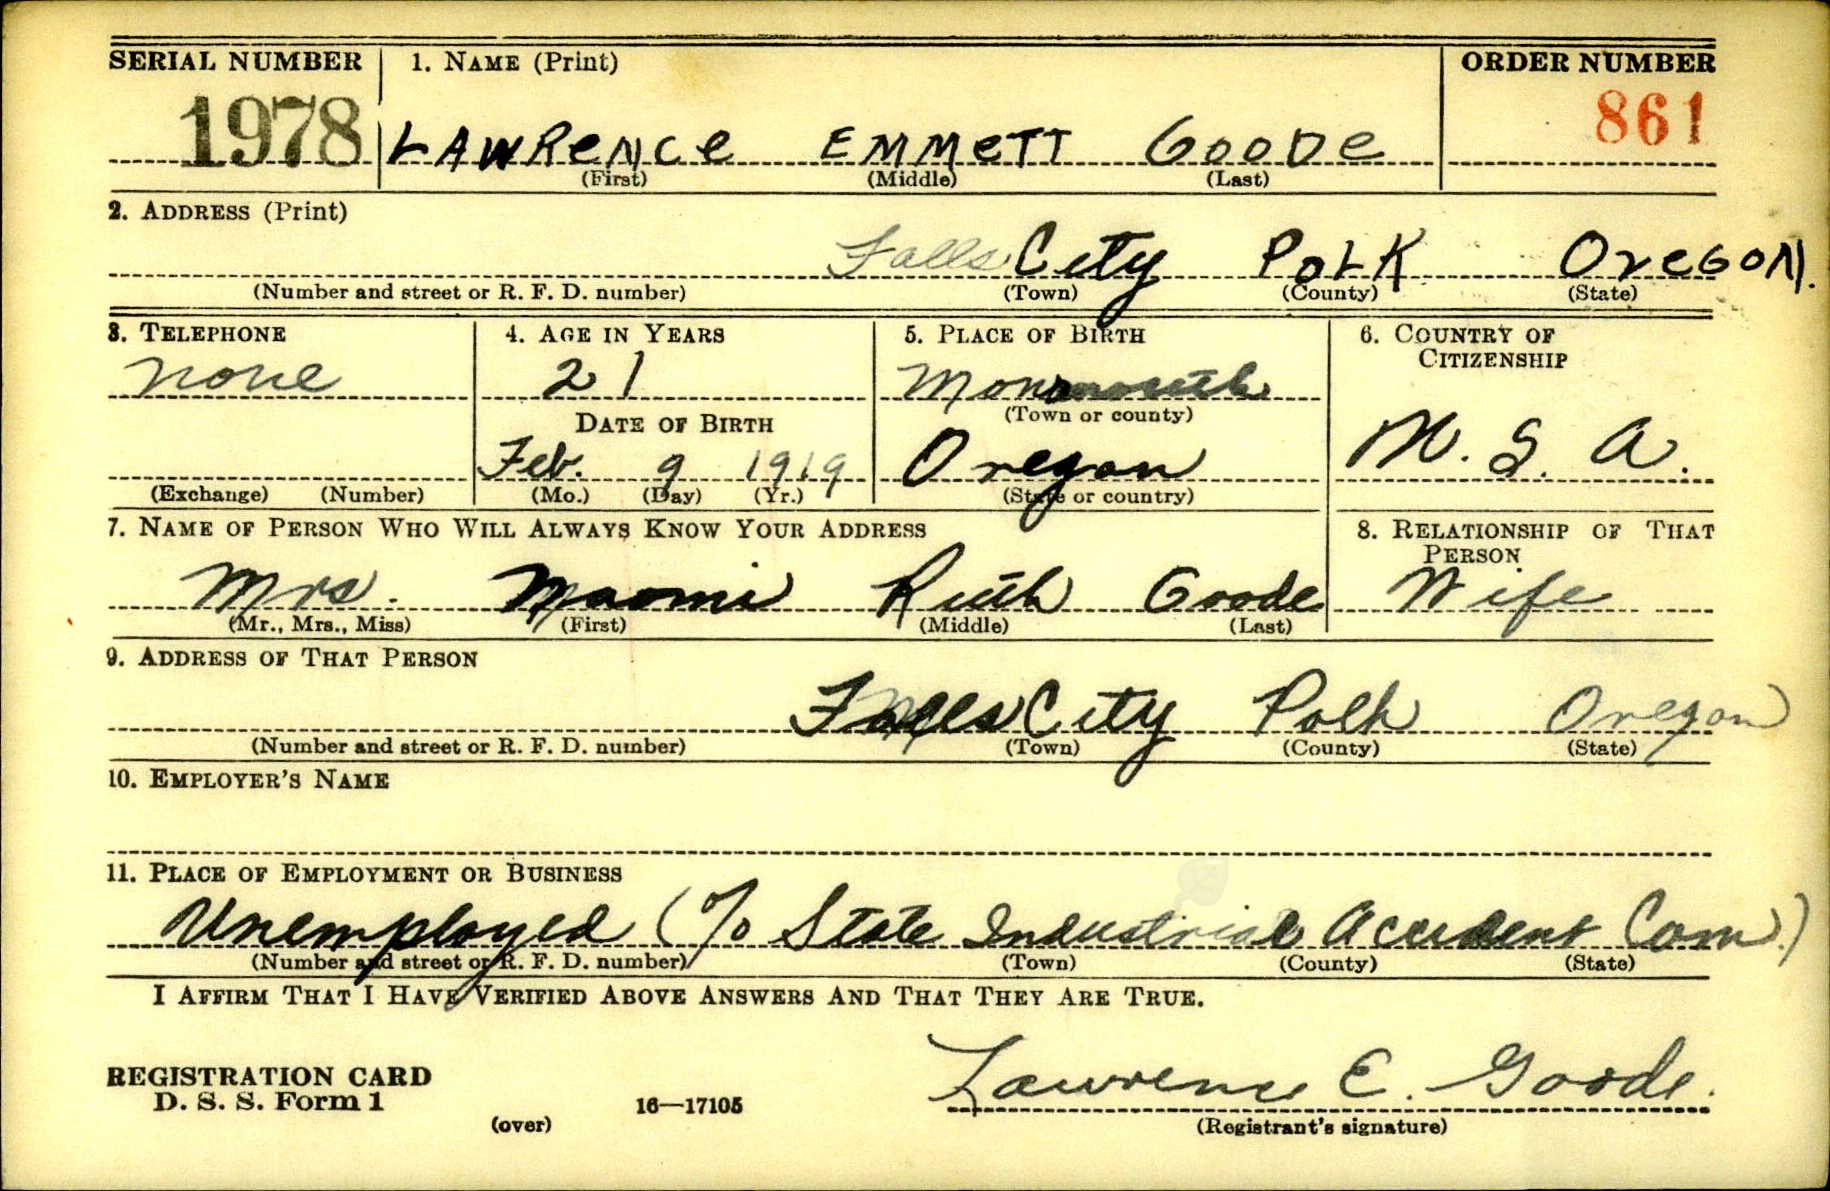 SERIAL NUMBER 1. NAME (Print) ORDER NUMBER
1978 LAWRENCE EMMETT GOODE 861
(First) (Middle) (Last)
2. ADDRESS (Print)
Falls City POLK OREGON.
(Number and street or R. F. D. number) (Town) (County) (State)
3. TELEPHONE 4. AGE IN YEARS 5. PLACE OF BIRTH 6. COUNTRY OF CITIZENSHIP
none 21 Monmouth
(Town or county)
DATE OF BIRTH U. S. A.
Feb. 9 1919 Oregon
(Exchange) (Number) (Mo.) (Day) (Yr.) (State or country)
7. NAME OF PERSON WHO WILL ALWAYS KNOW YOUR ADDRESS 8. RELATIONSHIP OF THAT PERSON
Mrs. Naomi Ruth Goode Wife
(Mr., Mrs., Miss) (First) (Middle) (Last)
9. ADDRESS OF THAT PERSON
Falls City Polk Oregon
(Number and street or R. F. D. number) (Town) (County) (State)
10. EMPLOYER'S NAME
11. PLACE OF EMPLOYMENT OR BUSINESS
Unemployed (% State Industrial Accident Com.)
(Number and street or R. F. D. number) (Town) (County) (State)
I AFFIRM THAT I HAVE VERIFIED ABOVE ANSWERS AND THAT THEY ARE TRUE.
Lawrence E. Goode.
REGISTRATION CARD
D. S. S. Form 1 16—17105
(over) (Registrant's signature)